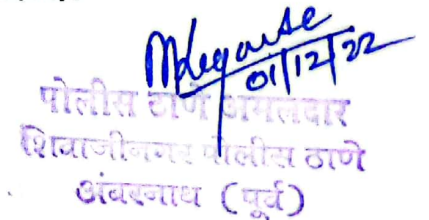 01/12/22
पोलीस ठाणे अमलदार
शिवाजीनगर पोलीस ठाणे
अंबरनाथ (पूर्व)